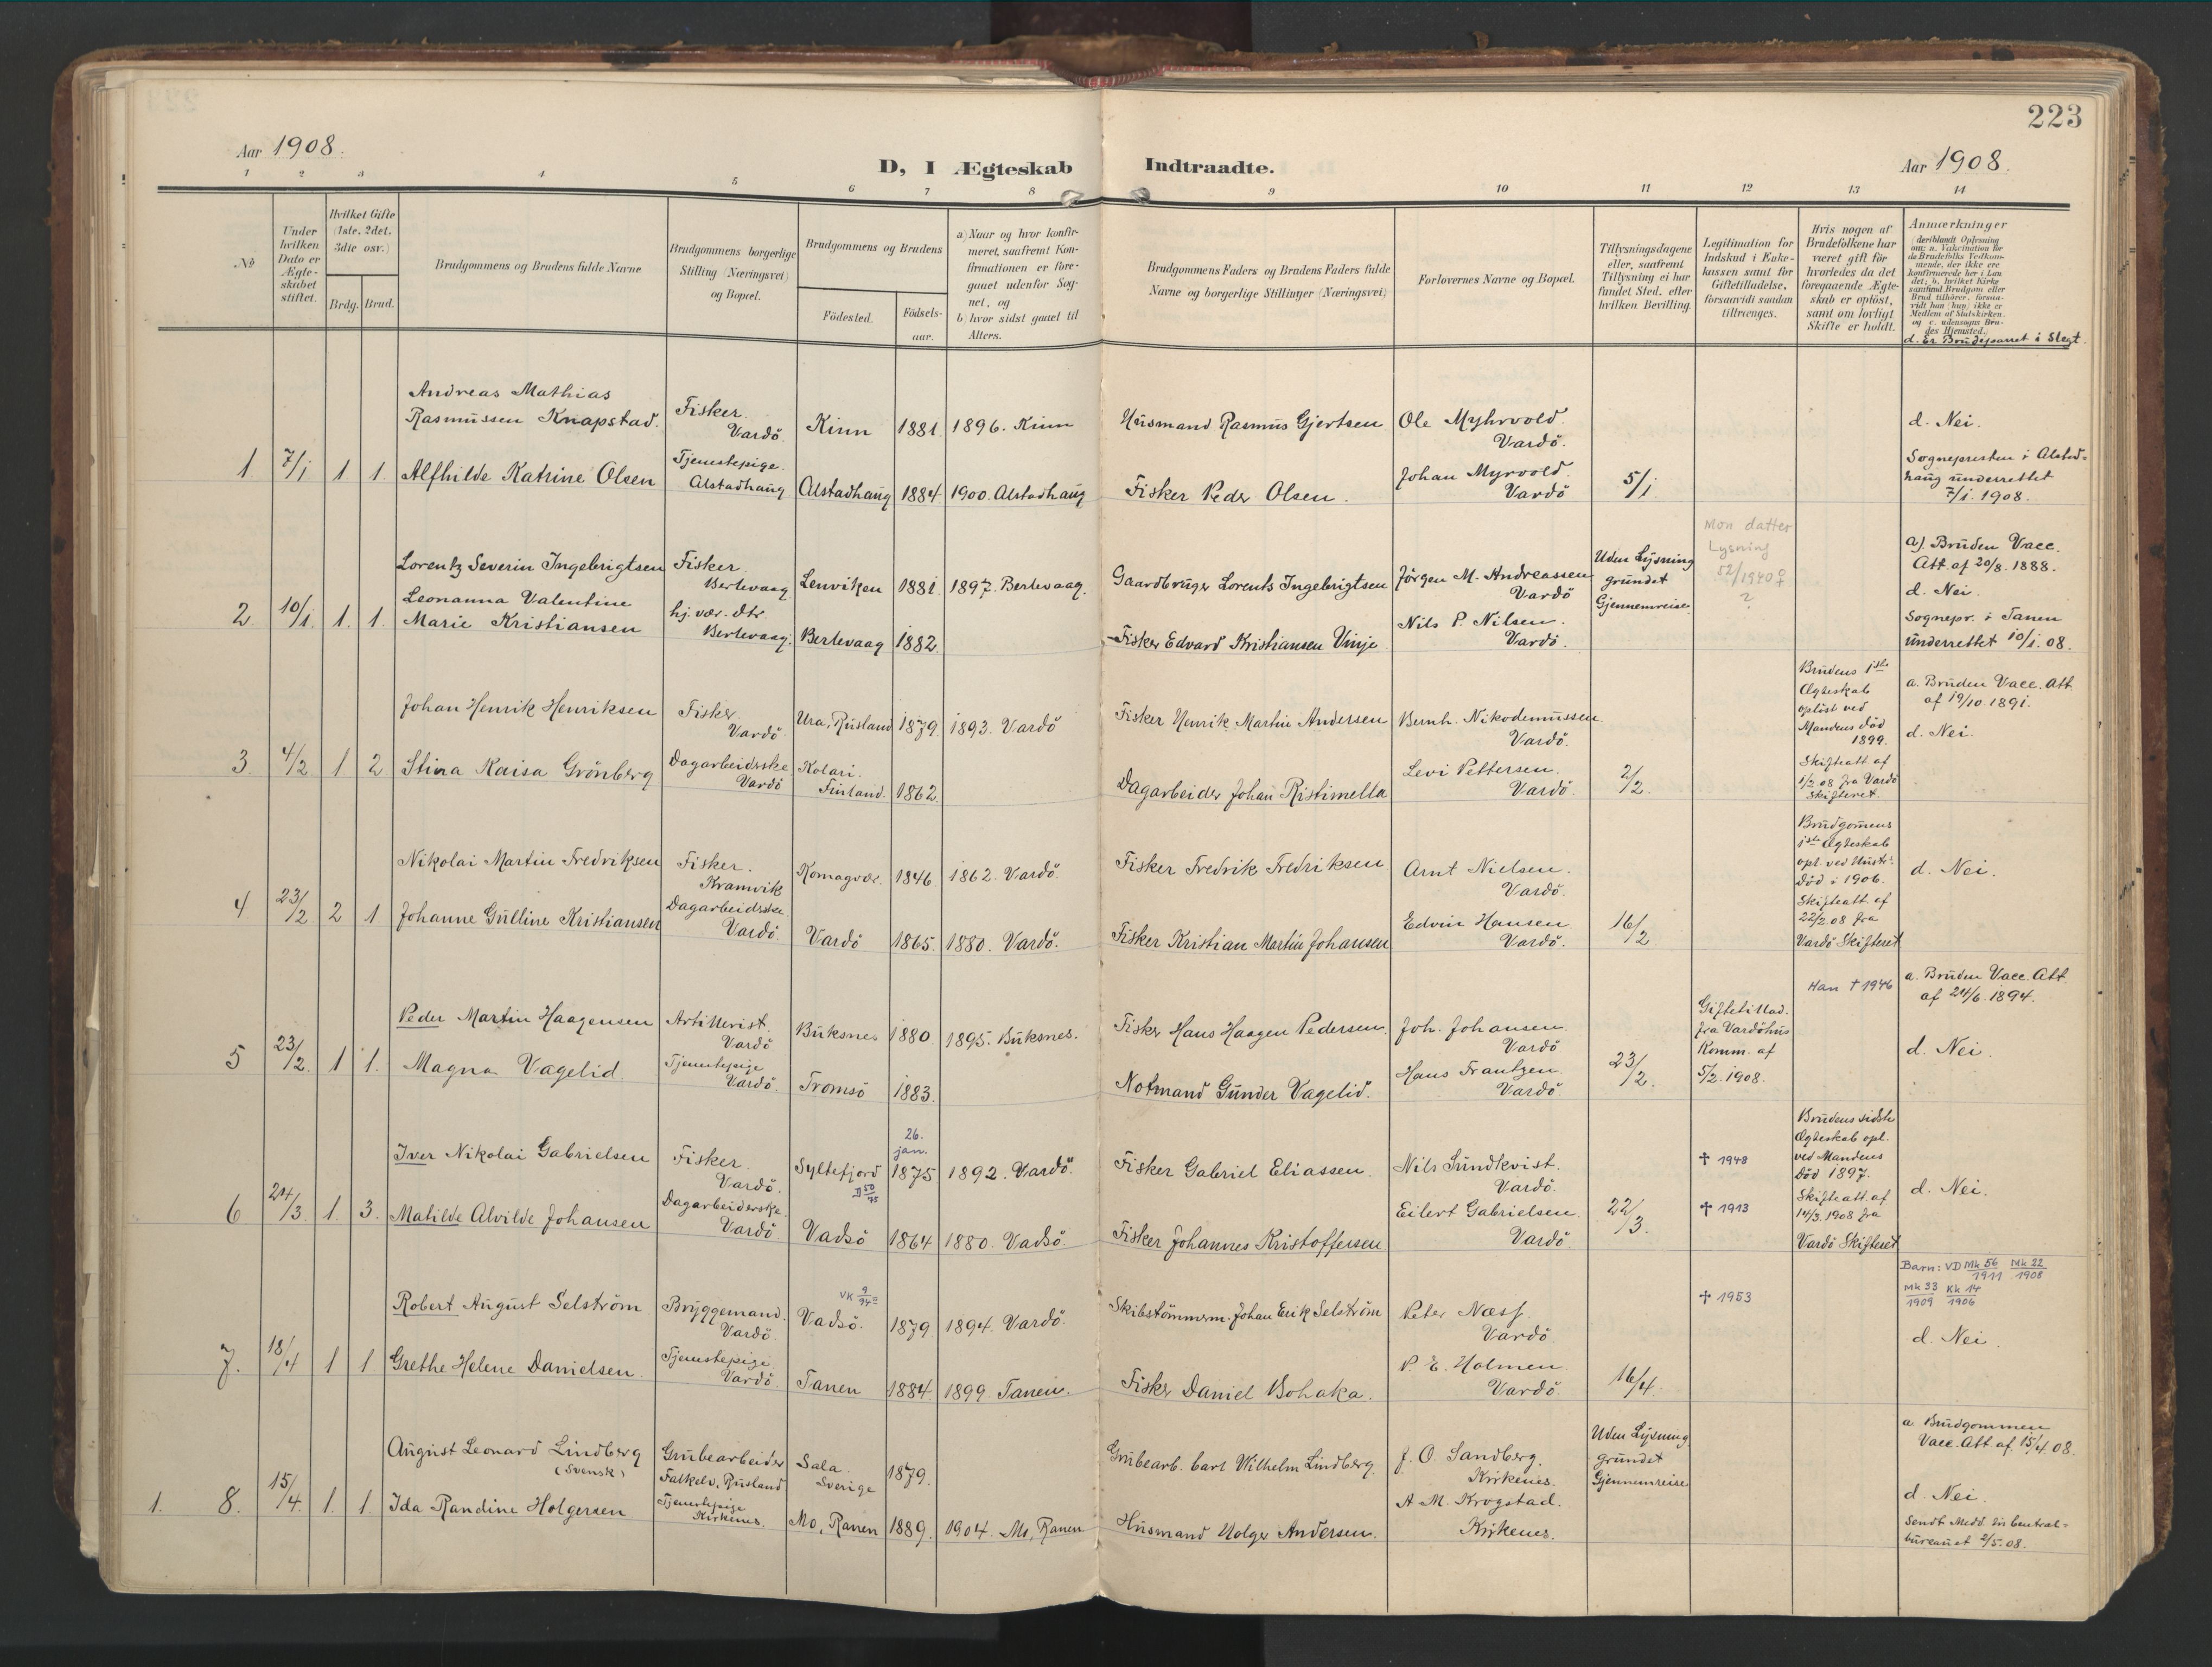 223
Aar 1908.
D, I Ægteskab Indtraadte.
Aar 1908.
1 2 3 4 5 6 7 8 9 10 11 12 13 14
No
Under
hvilken
Dato er
Ægte-
skabet
stiftet.
Hvilket Gifte
(1ste, 2det.
3die osv.)
Brdg. Brud.
Brudgommens og Brudens fulde Navne
Brudgommens borgerlige
Stilling (Næringsvei)
og Bopæl.
Brudgommens og Brudens
Födested.
Födsels-
aar.
a) Naar og hvor konfir-
meret, saafremt Kon-
firmationen er fore-
gaaet udenfor Sog-
net, og
b hvor sidst gaaet til
Alters.
Brudgommens Faders og Brudens Faders fulde
Navne og borgerlige Stillinger (Næringsvei)
Forlovernes Navne og Bopæl.
Tillysningsdagene
eller, saafremt
Tillysning ei har
fundet Sted, efter
hvilken Bevilling.
Legitimation for
Indskud i Enke-
kassen samt for
Giftetilladelse,
forsaavidt saadan
tiltrænges.
Hvis nogen af
Brudefolkene har
været gift för
hvorledes da det
foregaaende Ægte-
skab er oplöst,
samt om lovligt
Skifte er holdt.
Anmærkninger
(deriblandt Oplysning
om: a. Vakcination for
de Brudefolks Vedkom-
mende, der ikke ere
konfirmerede her i Lan
det; b. hvilket Kirke
samfund Brudgom eller
Brud tilhörer, forsaa-
vidt han (hun) ikke er
Medlem af Statskirken.
og c. udensogns Bru-
des Hjemsted.)
d. Er Brudeparret i Slegt.
1. 7/1 1 1.
Andreas Mathias
Rasmussen Knapstad.
Alfhilde Katrine Olsen
Fisker.
Vardö.
Tjenestepige.
Alstadhaug
Kinn 1881. 1896. Kinn
Alstadhaug 1884 1900. Alstadhaug
Husmand Rasmus Gjertsen
Fisker Peder Olsen.
Ole Myhrvold.
Vardö.
Johan Myrvold.
Vardö
5/1
d. Nei.
Sognepresten i Alstad=
haug underrettet
7/1. 1908.
2. 10/1. 1. 1.
Lorentz Severin Ingebrigtsen
Leonanna Valentine
Marie Kristiansen
Fisker.
Berlevaag
hj. vær. dtr.
Berlevaag.
Lenviken 1881. 1897. Berlevaag.
Berlevaag 1882.
Gaardbruger Lorents Ingebrigtsen
Fisker Edvard Kristiansen Vinje
Jörgen M. Andreassen
Vardö
Nils P. Nilsen.
Vardö.
Uden Lysning
grundet
Gjennemreise.
Mon datter
Lysning
52/1940 ♀
?
a). Bruden Vacc.
Att. af 20/8. 1888.
d. Nei.
Sognepr. i Tanen
underrettet 10/1. 08.
3. 4/2 1 2
Johan Henrik Henriksen
Stina Kaisa Grönberg
Fisker.
Vardö.
Dagarbeiderske
Vardö
Ura, Rusland 1879. 1893. Vardö
Kolari.
Finland. 1862.
Fisker Henrik Martin Andersen
Dagarbeider Johan Ristimella
Bernh. Nikodemussen
Vardö.
Levi Pettersen.
Vardö.
2/2.
Brudens 1ste
Ægteskab
oplöst ved
Mandens död
1899.
Skifteatt af
1/2 08 fra Vardö
Skifteret.
a. Bruden Vacc. Att.
af 19/10. 1891.
d. Nei.
4 23/2 2 1
Nikolai Martin Fredriksen
Johanne Gulline Kristiansen
Fisker.
Kramvik
Dagarbeidsske.
Vardö.
Komagvær. 1846. 1862. Vardö.
Vardö 1865. 1880. Vardö.
Fisker Fredrik Fredriksen
Fisker Kristian Martin Johansen
Arnt Nielsen.
Vardö.
Edvin Hansen
Vardö.
16/2
Brudgommens
1ste Ægteskab
opl. ved Hustr.
Död i 1906.
Skifteatt. af
22/2. 08 fra
Vardö Skifteret
d. Nei.
5 23/2. 1 1.
Peder Martin Haagensen
Magna Vagelid.
Artillerist.
Vardö
Tjenestepige
Vardö.
Buksnes 1880 1895. Buksnes.
Tromsö 1883.
Fisker Hans Haagen Pedersen.
Notmand Gunder Vagelid.
Joh. Johansen
Vardö
Hans Frantzen.
Vardö
23/2.
Giftetillad.
fra Vardöhus
Komm. af
5/2. 1908.
Han † 1946
a. Bruden Vacc. Att
af 24/6. 1894.
d. Nei.
6 24/3. 1. 3.
Iver Nikolai Gabrielsen
Matilde Alvilde Johansen
Fisker.
Vardö.
Dagarbeiderske.
Vardö
26.
jan.
Syltefjord 1875 1892. Vardö.
D 50/75
Vadsö 1864 1880. Vadsö.
Fisker Gabriel Eliassen.
Fisker Johannes Kristoffersen
Nils Sundkvist.
Vardö.
Eilert Gabrielsen.
Vardö.
22/3.
† 1948
† 1913
Brudens sidste
Ægteskab opl.
ved Mandens
Död 1897.
Skifteatt. af
14/3. 1908 fra
Vardö Skifteret
d. Nei.
7. 18/4 1 1
Robert August Selström
Grethe Helene Danielsen.
Bryggemand.
Vardö.
Tjenestepige
Vardö.
VK 9/94
Vadsö. 1879 1894. Vardö.
Tanen 1884 1899 Tanen.
Skibstömmerm. Johan Erik Selström
Fisker Daniel Bohaka.
Peter Næss.
Vardö
P. E. Holmen.
Vardö
16/4.
† 1953
Barn: VD Mk 56/1911 Mk 22/1908
Mk 33/1909 Kk 14/1906
d. Nei.
1. 8. 15/4. 1. 1.
August Leonard Lindberg
(Svensk)
Ida Randine Holgersen
Grubearbeider
Falkelv, Rusland
Tjenestepige
Kirkenes.
Sala.
Sverige 1879.
Mo, Ranen 1889. 1904. Mo, Ranen
Grubearb. Carl Wilhelm Lindberg.
Husmand Holger Andersen.
J. O. Sandberg.
Kirkenes.
A. M. Krogstad.
Kirkenes.
Uden Lysning
grundet
Gjennemreise
a. Brudgommen
Vacc. Att. af. 15/4. 08.
d. Nei.
Sendt Medd. til Central=
bureauet 2/5. 08.